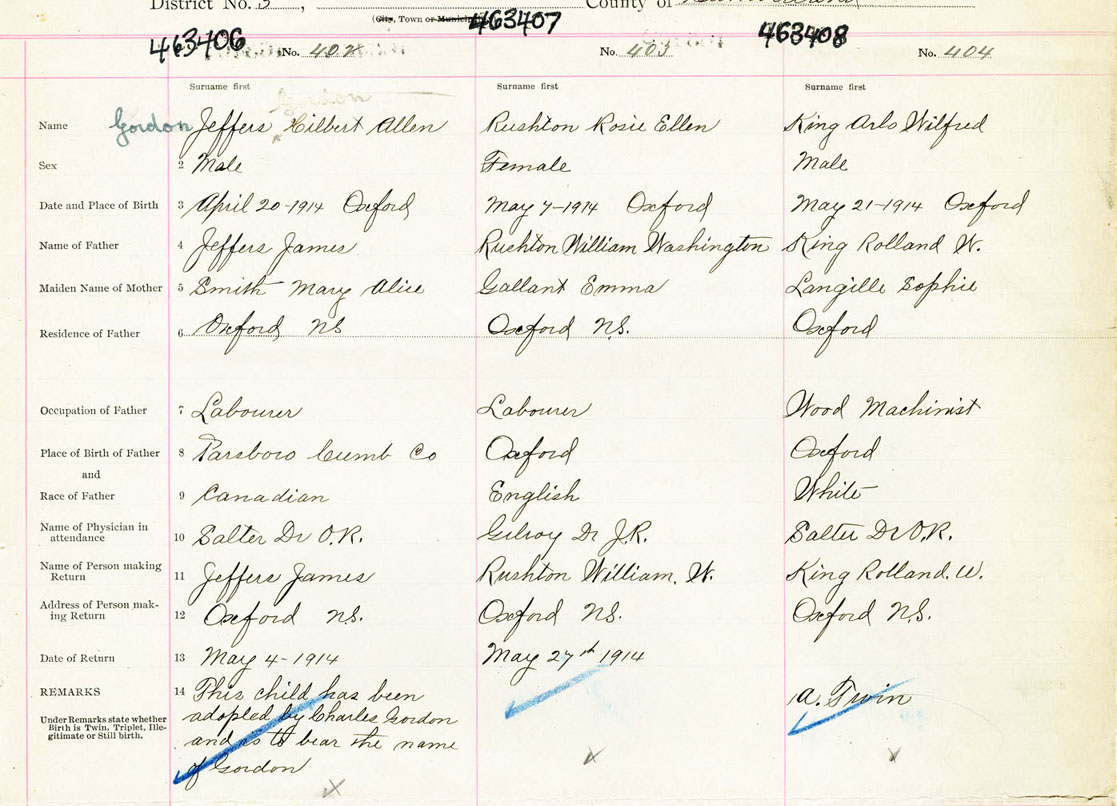 District No. 3, County of
(City, Town or Municip
463406 463407 463408
No. 402 No. 403 No. 404
Surname first Surname first Surname first
Gordon
Name Gordon Jeffers Hilbert Allen Rushton Rosie Ellen King Arlo Wilfred
Sex 2 Male Female Male
Date and Place of Birth 3 April 20-1914 Oxford May 7-1914 Oxford May 21-1914 Oxford
Name of Father 4 Jeffers James Rushton William Washington King Rolland W.
Maiden Name of Mother 5 Smith Mary Alice Gallant Emma Langille Sophie
Residence of Father 6 Oxford NS Oxford N.S. Oxford
Occupation of Father 7 Labourer Labourer Wood Machinist
Place of Birth of Father 8 Parsboro Cumb Co Oxford Oxford
and
Race of Father 9 Canadian English White
Name of Physician in
attendance 10 Salter Dr O.R. Gilroy Dr J.R. Salter Dr O.R.
Name of Person making
Return 11 Jeffers James Rushton William. W. King Rolland. W.
Address of Person mak-
ing Return 12 Oxford NS. Oxford NS. Oxford N.S.
Date of Return 13 May 4-1914 May 27th 1914
REMARKS 14 This child has been a. Twin
Under Remarks state whether
Birth is Twin, Triplet, Ille-
gitimate or Still birth.
adopted by Charles Gordon
and is to bear the name
of Gordon